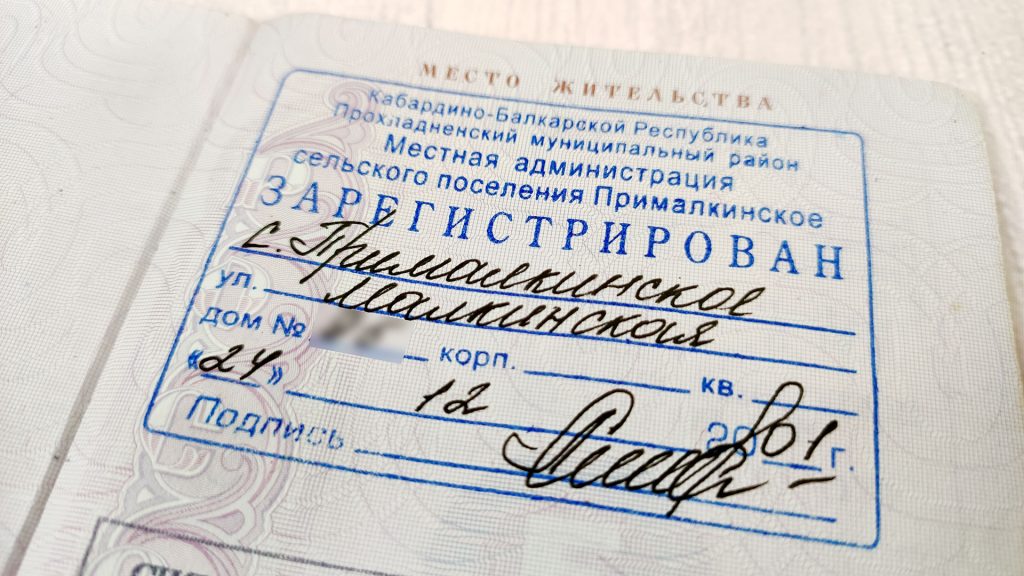 МЕСТО ЖИТЕЛЬСТВА
Кабардино-Балкарской Республика
Прохладненский муниципальный район
Местная администрация
сельского поселения Прималкинское
ЗАРЕГИСТРИРОВАН
с. Прималкинское
ул. Малкинская
дом № корп. кв.
«24» 12 2001 г.
Подпись